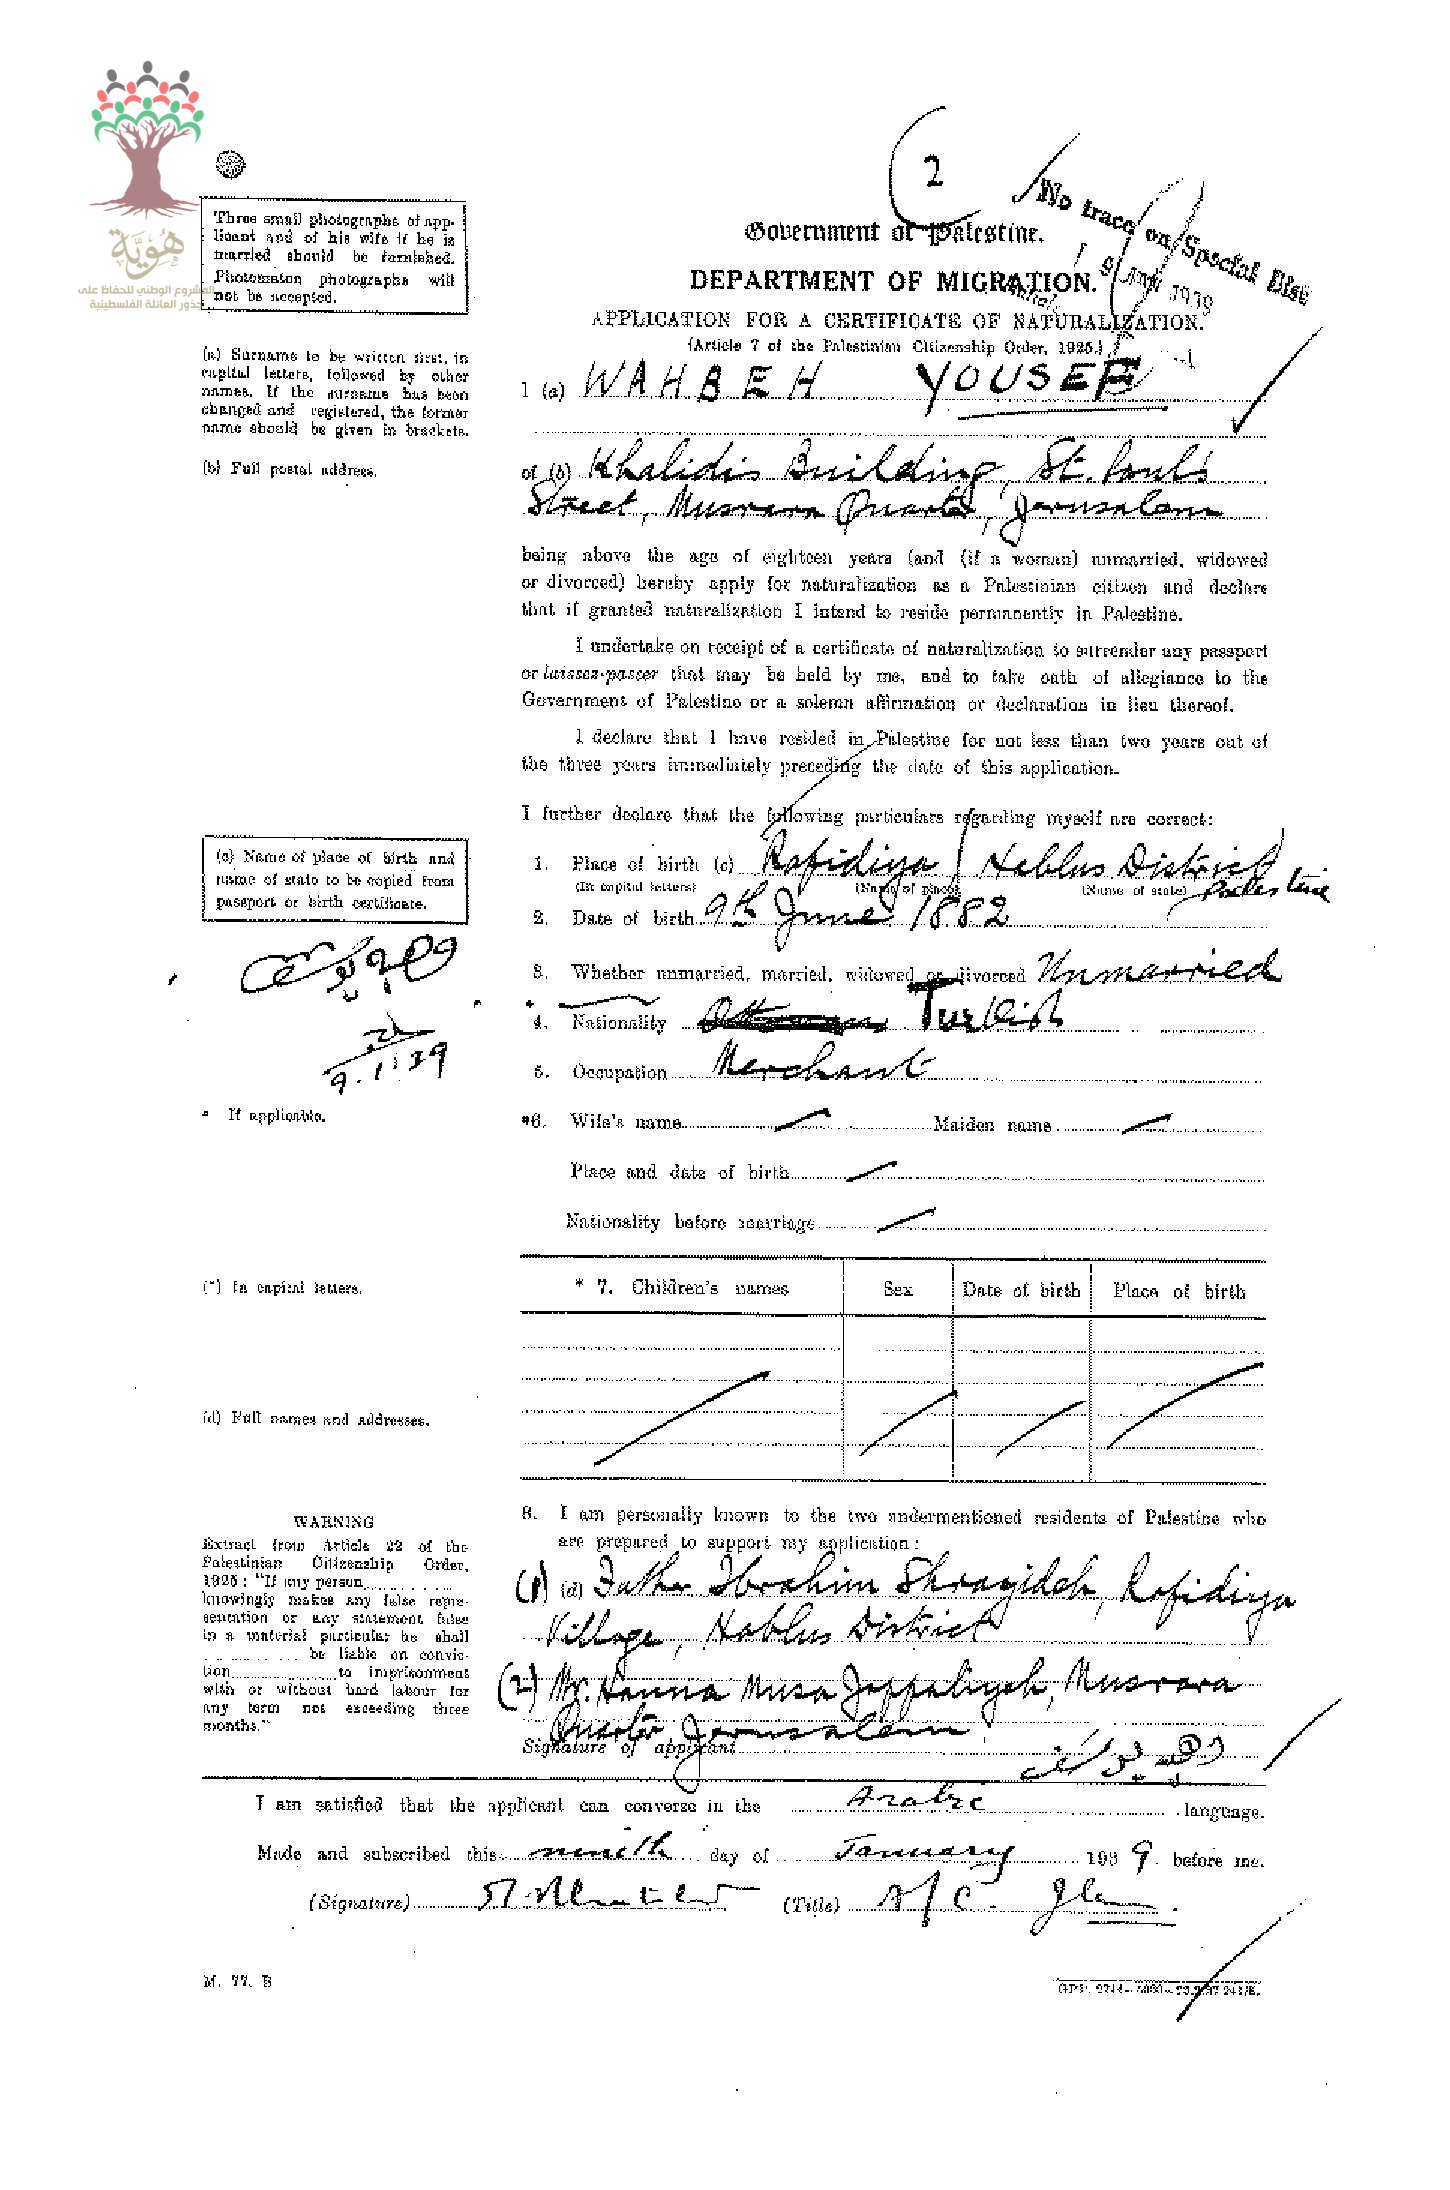 هُويَّة
المشروع الوطني للحفاظ على
جذور العائلة الفلسطينية
2
No trace on Special List
9 JAN 1939
Three small photographs of app-
licant and of his wife if he is
married should be furnished.
Photomaton photographs will
not be accepted.
Government of Palestine.
DEPARTMENT OF MIGRATION.
APPLICATION FOR A CERTIFICATE OF NATURALIZATION.
(Article 7 of the Palestinian Citizenship Order, 1925.)
(a) Surname to be written first, in
capital letters, followed by other
names. If the surname has been
changed and registered, the former
name should be given in brackets.
1 (a) WAHBEH YOUSEF
(b) Full postal address.
of (b) Khalidis Building, St. Paul's
Street, Musrara Quarter, Jerusalem
being above the age of eighteen years (and (if a woman) unmarried, widowed
or divorced) hereby apply for naturalization as a Palestinian citizen and declare
that if granted naturalization I intend to reside permanently in Palestine.
I undertake on receipt of a certificate of naturalization to surrender any passport
or laissez-passer that may be held by me, and to take oath of allegiance to the
Government of Palestine or a solemn affirmation or declaration in lieu thereof.
I declare that I have resided in Palestine for not less than two years out of
the three years immediately preceding the date of this application.
I further declare that the following particulars regarding myself are correct:
(c) Name of place of birth and
name of state to be copied from
passport or birth certificate.
1. Place of birth (c) Rafidiya / Nablus District Palestine
(In capital letters) (Name of place) (Name of state)
2. Date of birth 9th June 1882
3. Whether unmarried, married, widowed or divorced Unmarried
4. Nationality Turkish
9.1.39
5. Occupation Merchant
* If applicable.
*6. Wife's name Maiden name
Place and date of birth
Nationality before marriage
(*) In capital letters.
* 7. Children's names Sex Date of birth Place of birth
(d) Full names and addresses.
8. I am personally known to the two undermentioned residents of Palestine who
are prepared to support my application:
WARNING
Extract from Article 22 of the
Palestinian Citizenship Order,
1925: "If any person
knowingly makes any false repre-
sentation or any statement false
in a material particular he shall
be liable on convic-
tion to imprisonment
with or without hard labour for
any term not exceeding three
months."
(1) (d) Father Ibrahim Shrayideh, Rafidiya
Village, Nablus District
(2) Mr. Hanna Musa Jappaliyeh, Musrara
Quarter Jerusalem
Signature of applicant
I am satisfied that the applicant can converse in the Arabic language.
Made and subscribed this ninth day of January 1939 before me.
(Signature) (Title) A/C. Jlem
M. 77. B